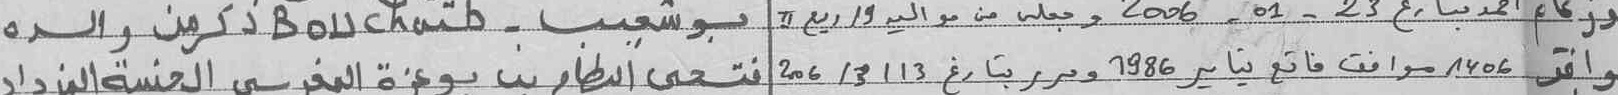 وزكام احمد بتاريخ 23 - 01 - 2006 وجعله من مواليد 19 ربيع II بوشعيب - Bouchaib ذكر من والده
وافق 1406 موافق فاتح يناير 1986 وحرر بتاريخ 13/3/206 فتحي النظام بن بوعزة المغربي الجنسية المزداد